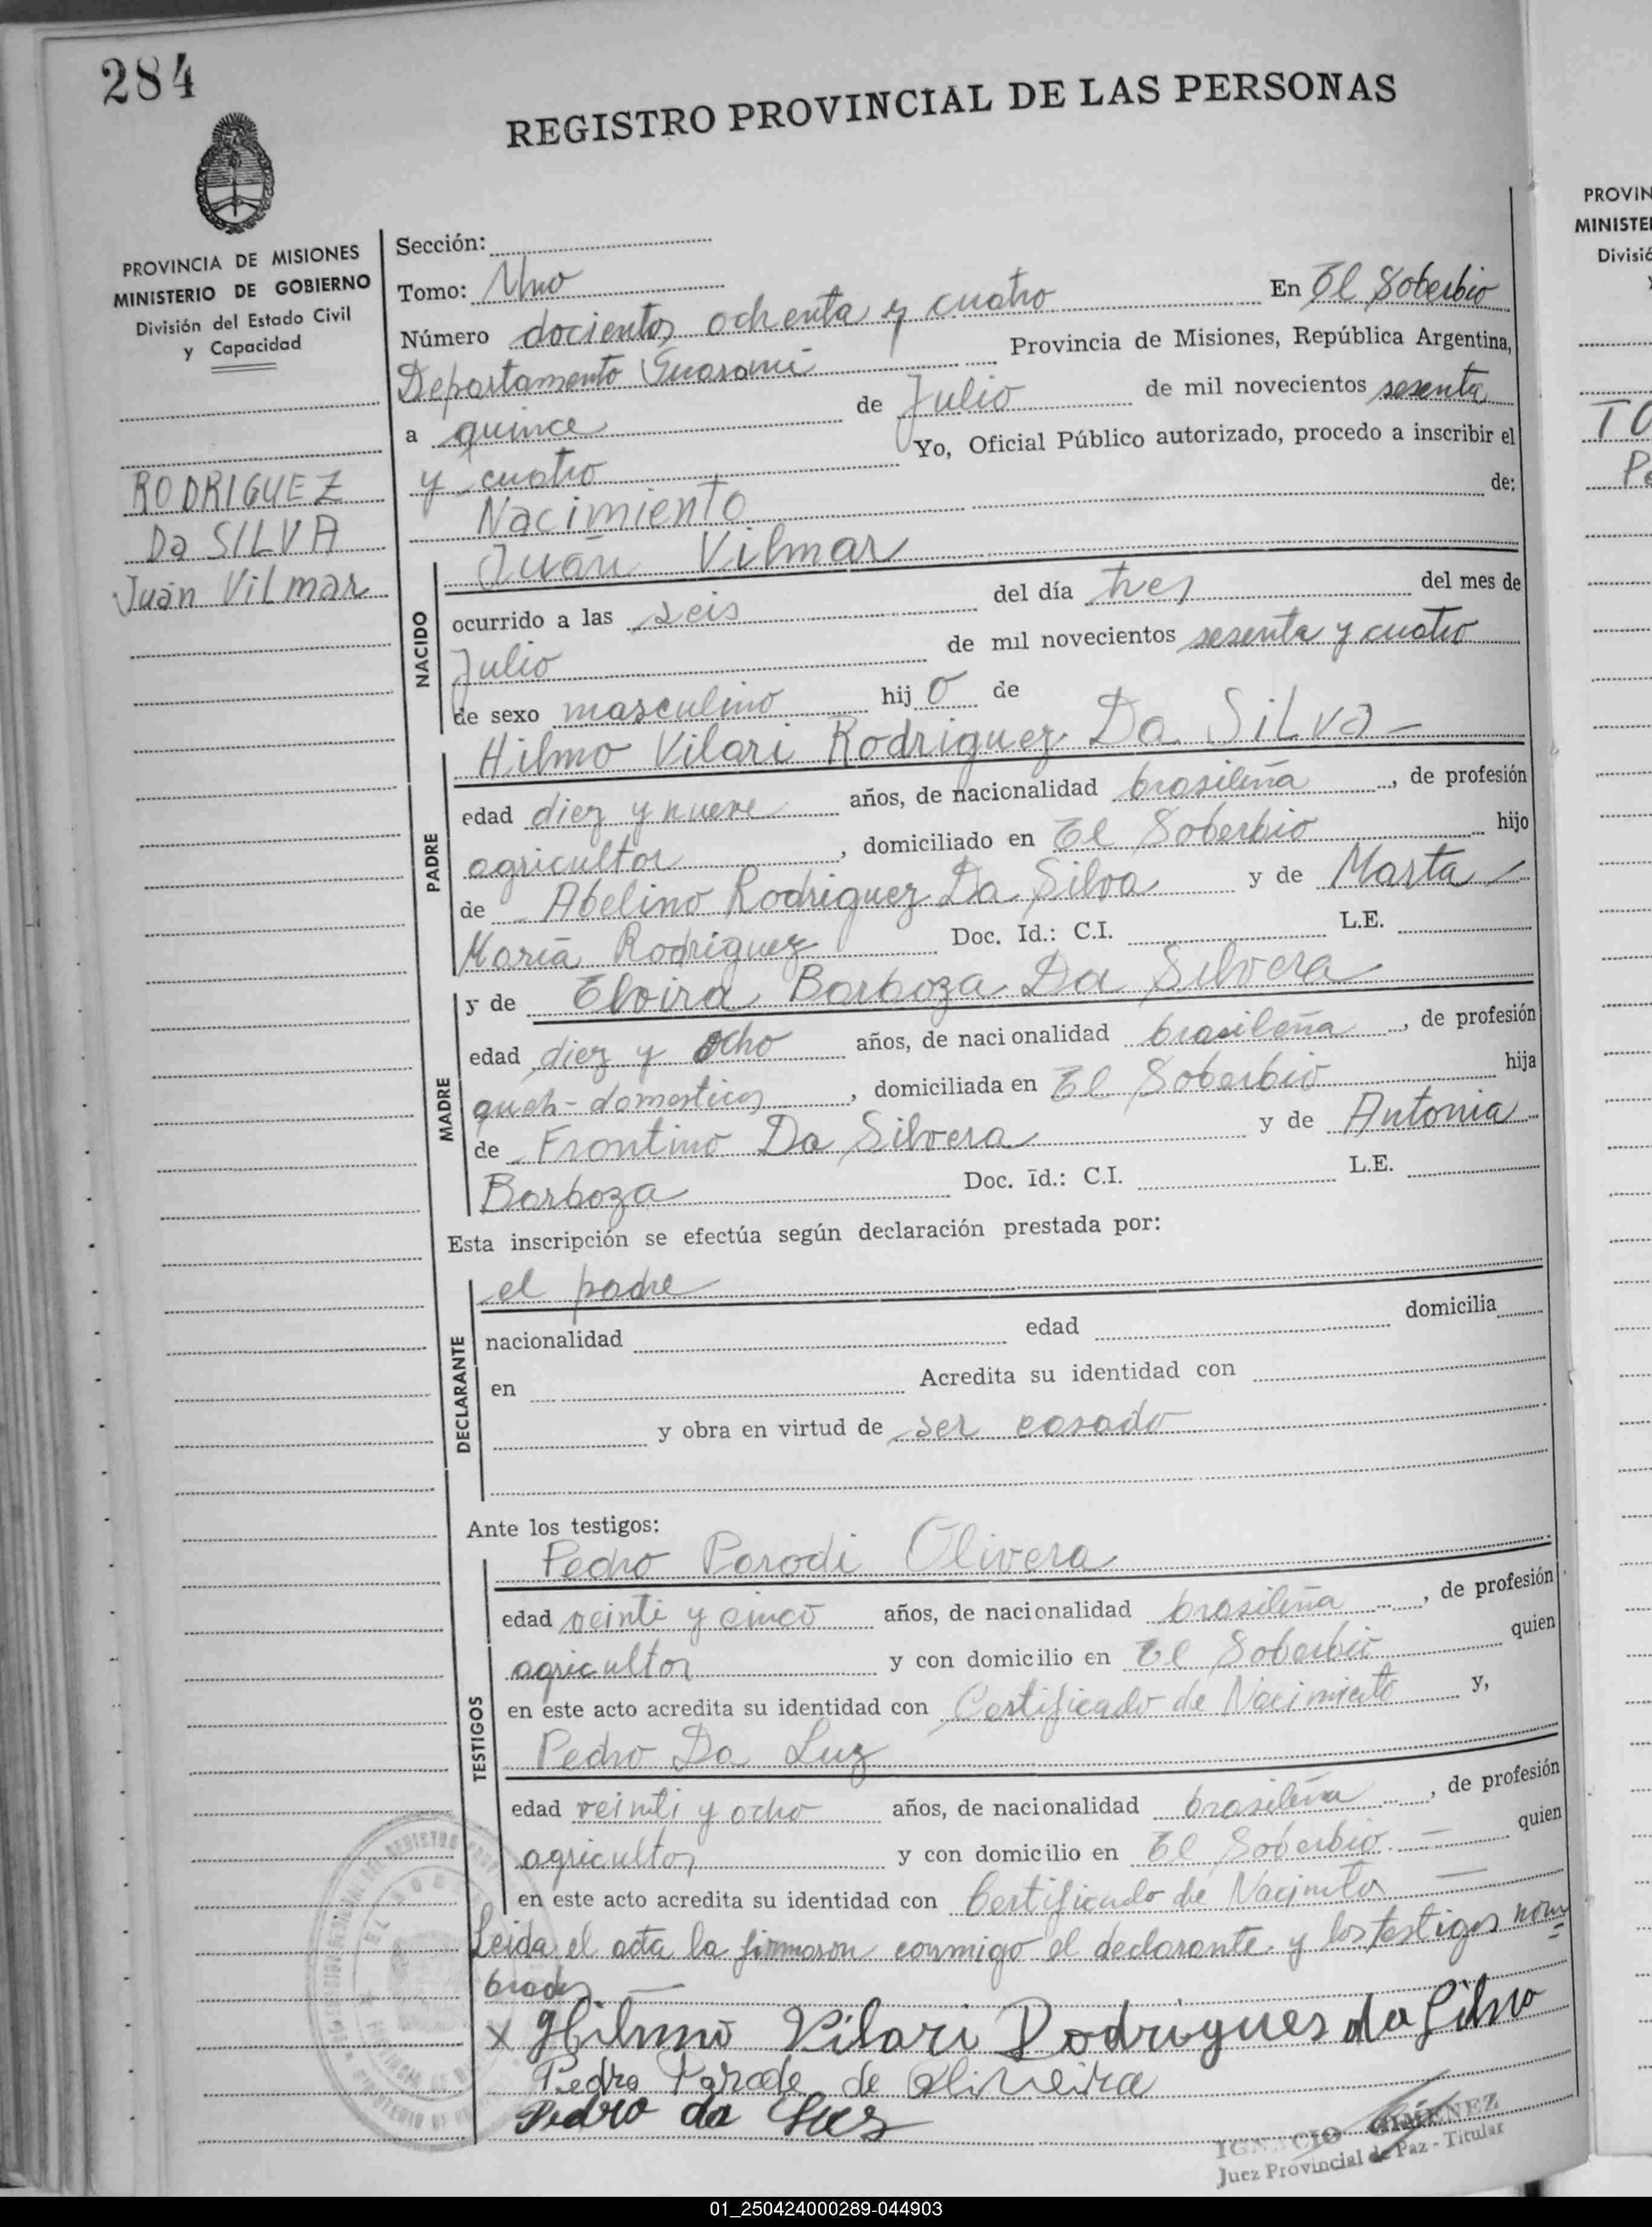 284
REGISTRO PROVINCIAL DE LAS PERSONAS
PROVINCIA DE MISIONES
MINISTERIO DE GOBIERNO
División del Estado Civil
y Capacidad
RODRIGUEZ
Da SILVA
Juan Vilmar
Sección:
Tomo: Uno
Número docientos ochenta y cuatro En El Soberbio
Departamento Guaraní Provincia de Misiones, República Argentina,
a quince de Julio de mil novecientos sesenta
y cuatro Yo, Oficial Público autorizado, procedo a inscribir el
Nacimiento de:
Juan Vilmar
NACIDO
ocurrido a las seis del día tres del mes de
Julio de mil novecientos sesenta y cuatro
de sexo masculino hij o de
Hilmo Vilari Rodriguez Da Silva
PADRE
edad diez y nueve años, de nacionalidad brasileña, de profesión
agricultor, domiciliado en El Soberbio hijo
de Abelino Rodriguez Da Silva y de Marta
María Rodriguez Doc. Id.: C.I. L.E.
y de Elvira Barboza Da Silvera
MADRE
edad diez y ocho años, de nacionalidad brasileña, de profesión
queh-domesticos, domiciliada en El Soberbio hija
de Frontino Da Silvera y de Antonia
Barboza Doc. Id.: C.I. L.E.
Esta inscripción se efectúa según declaración prestada por:
el padre
DECLARANTE
nacionalidad edad domicilia
en Acredita su identidad con
y obra en virtud de ser casado
Ante los testigos:
Pedro Parodi Olivera
TESTIGOS
edad veinti y cinco años, de nacionalidad brasileña, de profesión
agricultor y con domicilio en El Soberbio quien
en este acto acredita su identidad con Certificado de Nacimiento y,
Pedro Da Luz
edad veinti y ocho años, de nacionalidad brasileña, de profesión
agricultor y con domicilio en El Soberbio. quien
en este acto acredita su identidad con Certificado de
Leida el acta la firmaron conmigo el declarante y los testigos nom=
brados
x Hilmo Vilari Rodrigues da Silva
Pedro de Oliveira
Pedro da Luz
IGNACIO GIMENEZ
Juez Provincial de Paz - Titular
PROVIN
MINISTE
Divisió
01_250424000289-044903